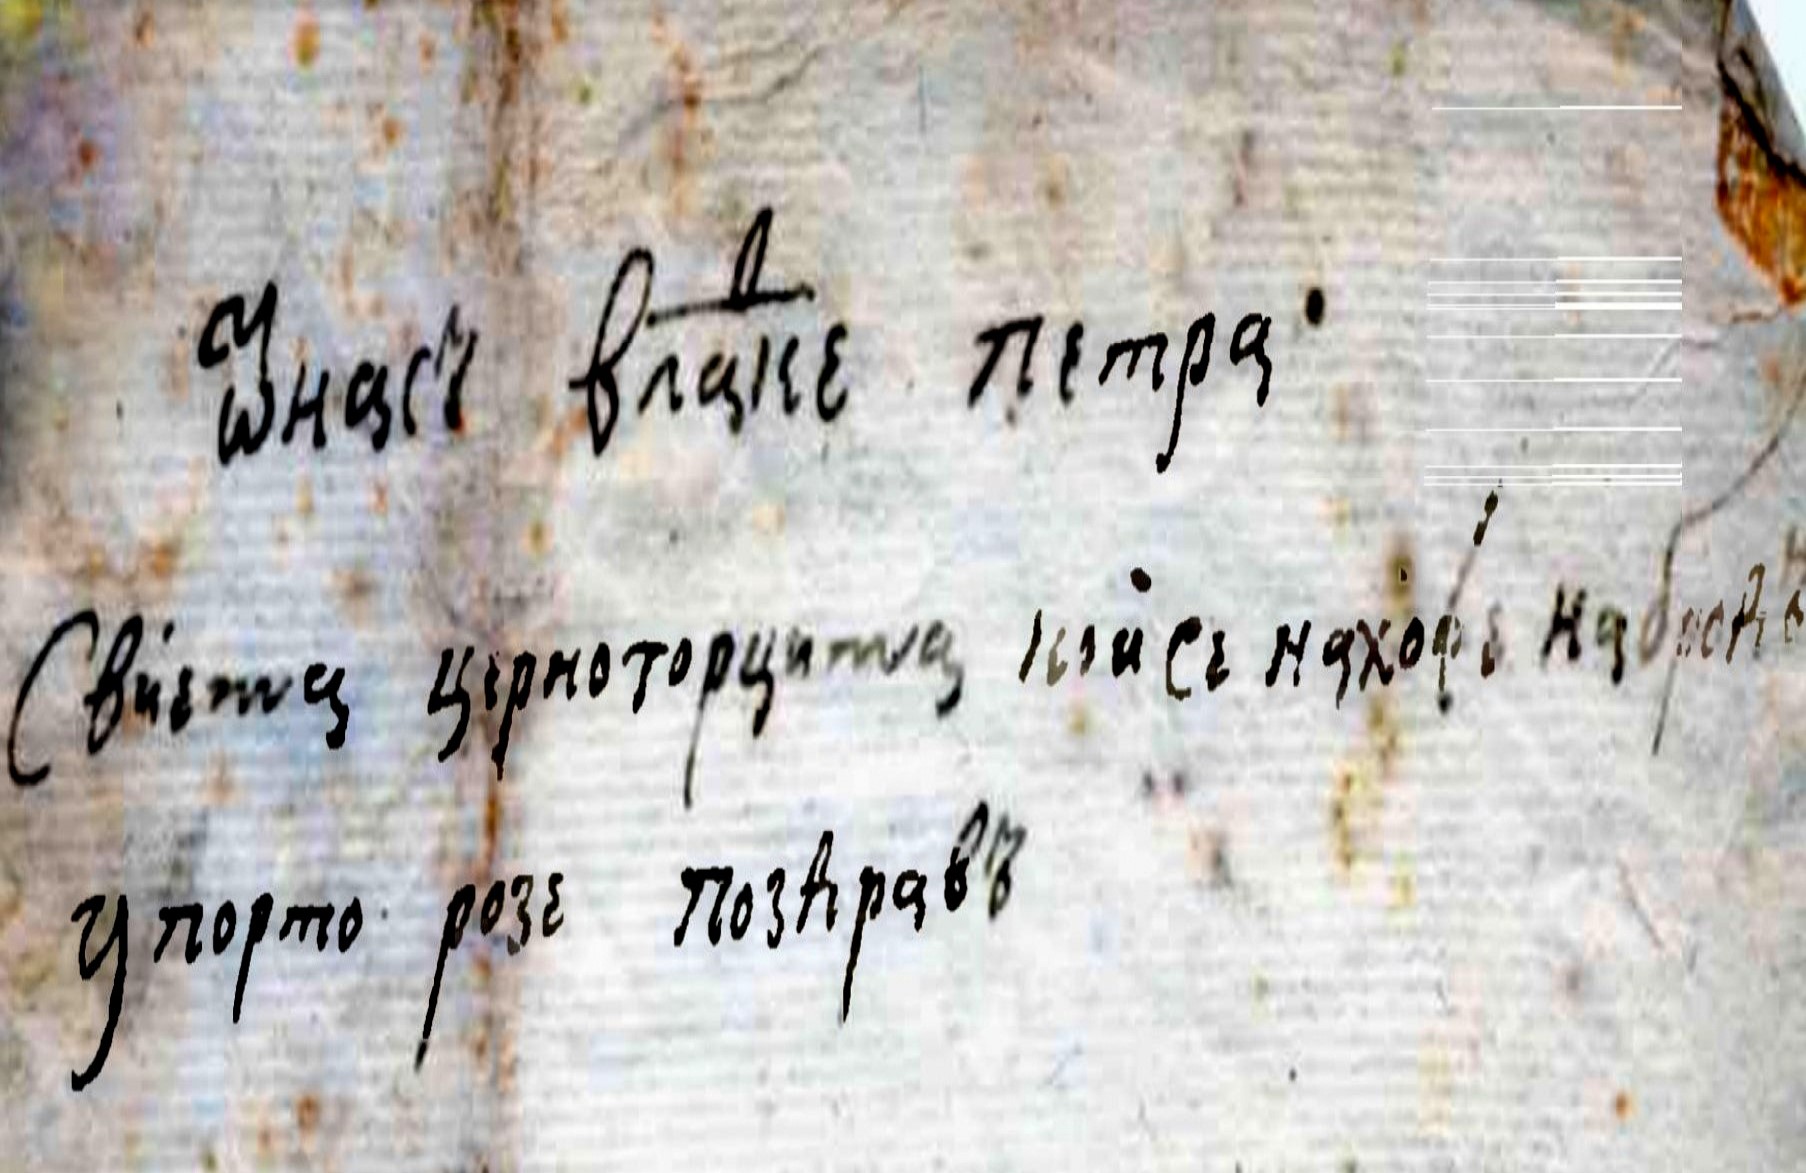 Ѿ насъ влаⷣке петра
Свиема церногорцима кои се находе на
у порто розе поздравъ